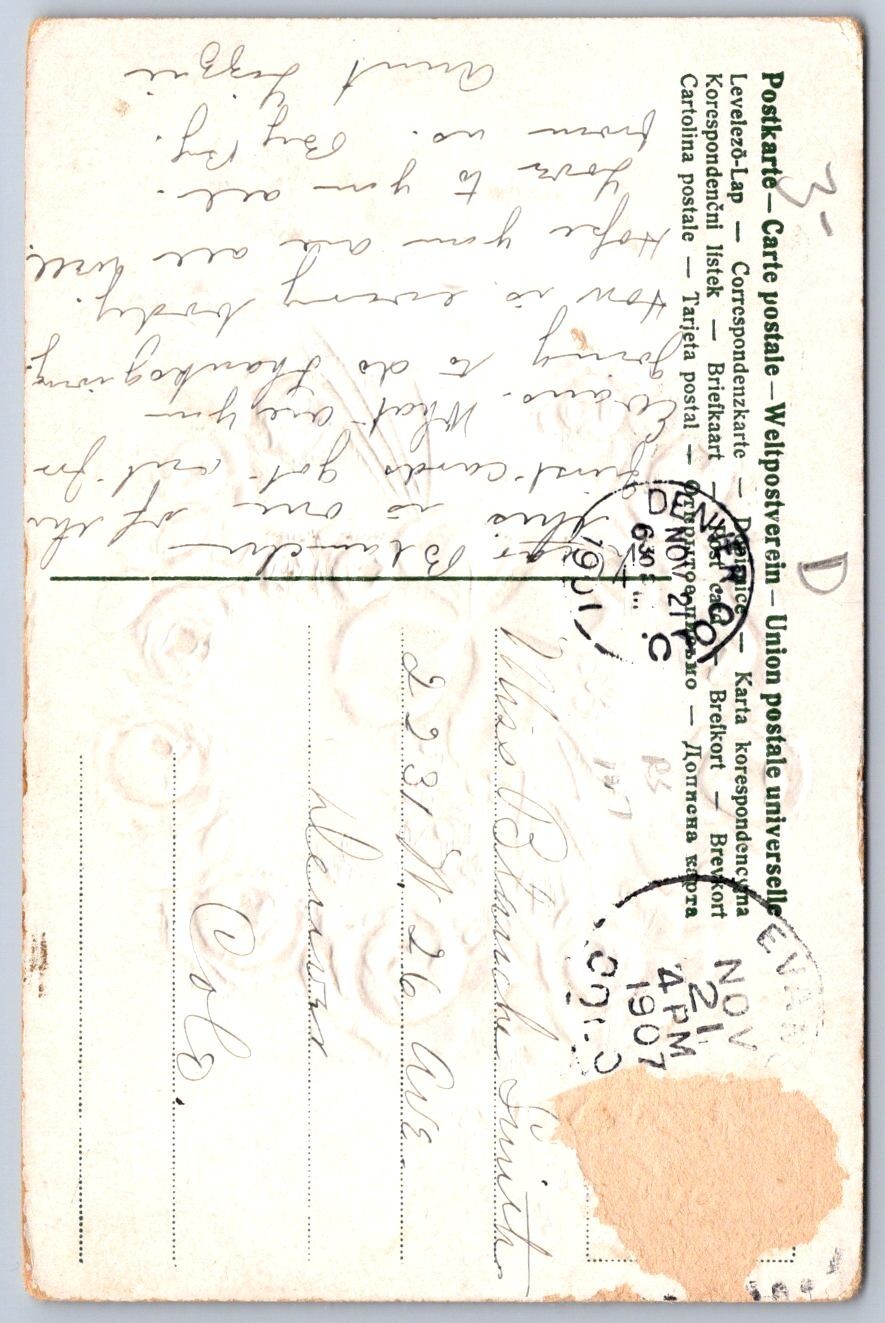 Postkarte — Carte postale — Weltpostverein — Union postale universelle
Levelező-Lap — Correspondenzkarte — — Karta korespondencyjna
Korespondenční lístek — Briefkaart — Post card — Brefkort — Brevkort
Cartolina postale — Tarjeta postal — Открытое письмо — Дописна карта
3-
D
DENVER, COLO.
NOV 21
630 P
1907
EVANS
NOV
21
4 PM
1907
COLO
Blanche
this is one of the
first cards got out for
Evans. What are you
going to do thanksgiving
How is every body.
Hope you are all well.
Love to you all.
from us. By By.
Aunt Lizzie
Miss Blanche Smith
2231 W. 26 Ave
Denver
Colo.